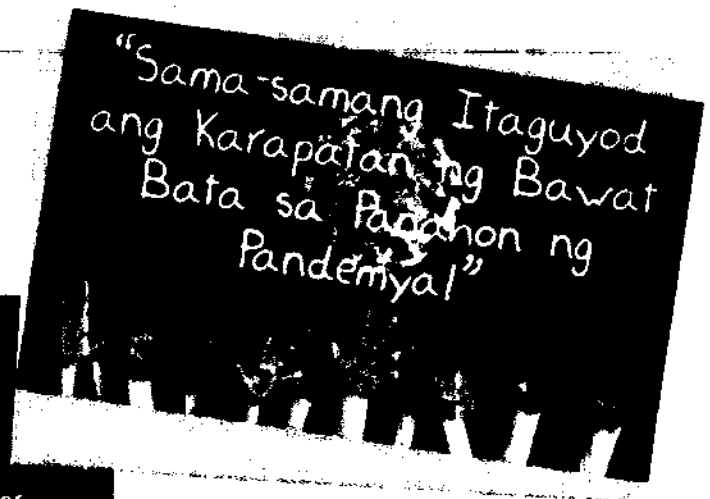 “Sama-samang Itaguyod
ang Karapatan ng Bawat
Bata sa Panahon ng
Pandemya!”